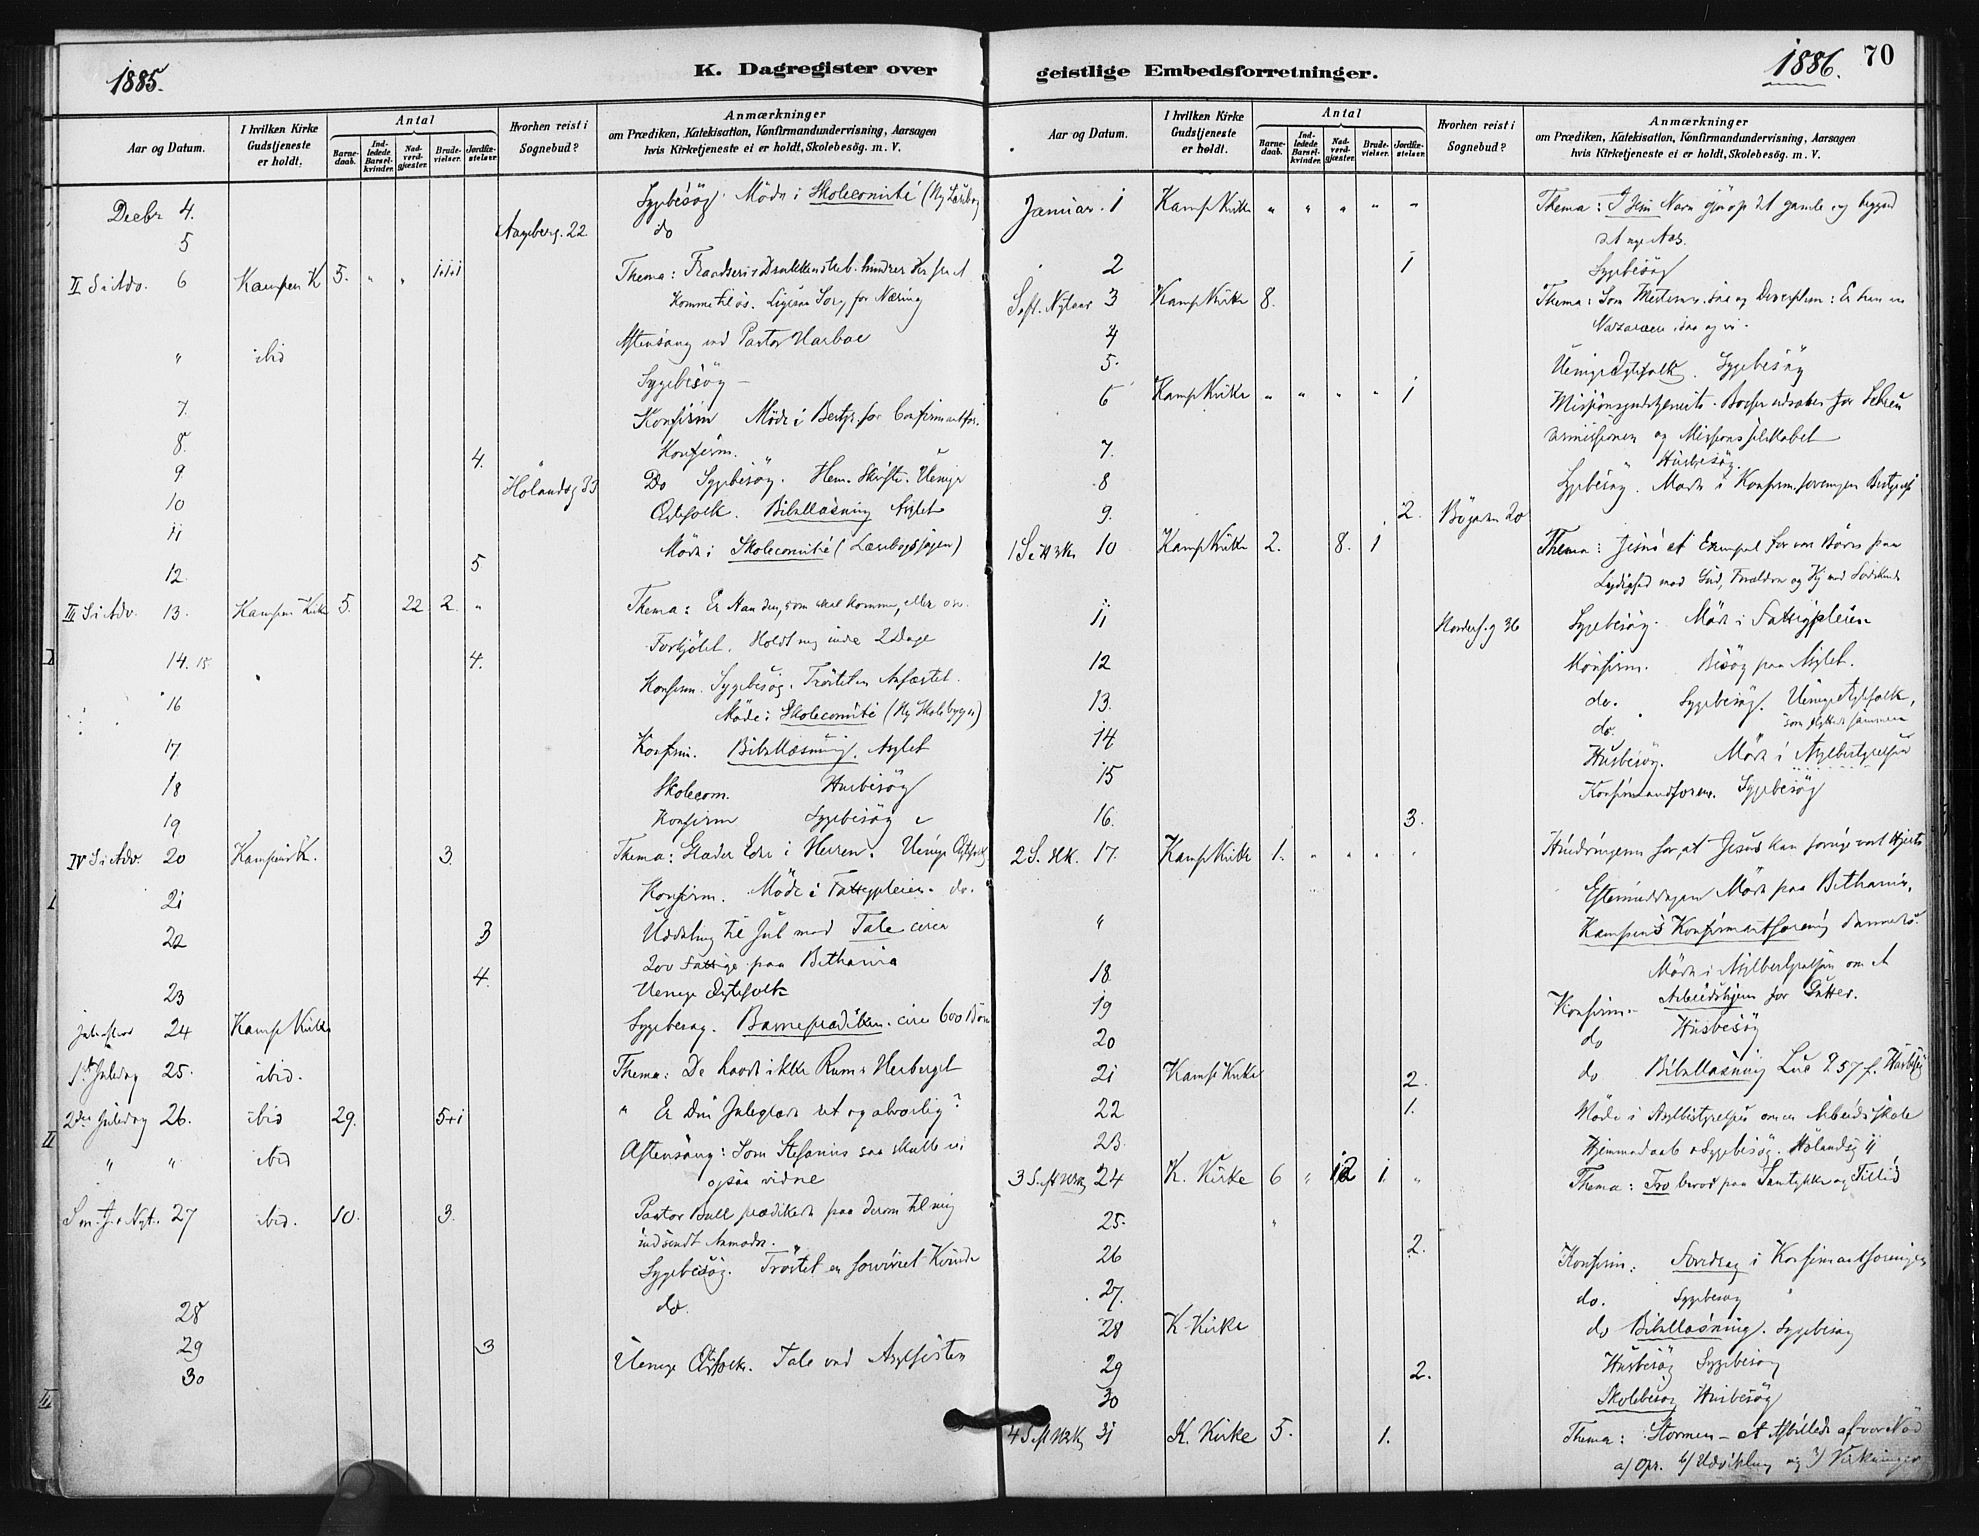 1885.
K. Dagregister over
Aar og Datum.
I hvilken Kirke Gudstjeneste er holdt.
Antal
Barnedaab.
Indledede Barselkvinder.
Nadverdgjæster.
Brudevielser.
Jordfæstelser.
Hvorhen reist i Sognebud?
Anmærkninger
om Prædiken, Katekisation, Konfirmandundervisning, Aarsagen
hvis Kirketjeneste ei er holdt, Skolebesög. m. V.
Decbr 4. Sygebesög. Möde i Skolecomité (Ny Læsebog
5 Aageberg. 22 do
II S. i Adv. 6 Kampen K 5. " " 1+1+1 Thema:
Komme til os. Ligesaa Sorg for Næring
" ibid Aftensang ved Pastor Harboe
Sygebesög –
7. Konfirm Möde i Bestyr. for Confirmantfor.
8. 4. Konfirm.
9 Hölandsg 33 Do Sygebesög. Hem. Skrifte. Uenige
10 Ægtefolk. Bibellæsning Asylet
11 Möde i Skolecomité (Læsebogssagen)
12. 5
III S. i Adv. 13. Kampen Kirke 5. 22 2. " Thema: Er Han den, som skal komme, eller
Forkjölet. Holdt mig inde 2 Dage
14. 15 4. Konfirm. Sygebesög. Tröstet en Anfægtet.
16 Möde i Skolecomité (Ny Skolebygn)
17 Konfirm. Bibellæsning. Asylet
18 Skolecom. Husbesög
19 Konfirm Sygebesög
IV S. i Adv. 20 Kampens K. 3. Thema: Glæder Eder i Herren. Uenige Ægtefolk
21 Konfirm. Möde i Fattigpleien. do.
22 3 Uddeling til Jul med Tale circa
200 Fattige paa Bethania
23 4. Uenige Ægtefolk
Juleaften 24 Kamp Kirke Sygebesög. Barneprædiken. circa 600 Börn
1ste Juledag 25. ibid. Thema: De havde ikke Rum i Herberget
2den Juledag 26. ibid 29. 5+1 " Er Din Juleglæde ret og alvorlig?
" " ibid Aftensang: Som Stefanus saa skulle vi
ogsaa vidne
S. m. J. o Nyt. 27 ibid. 10. 3. Pastor Bull prædikede paa derom til mig
indsendt Anmodn.
Sygebesög. Tröstet en forvirret Kvinde
28 do.
29 3
30 Uenige Ægtefolk. Tale ved Asylfesten
geistlige Embedsforretninger.
1886.
70
Aar og Datum.
I hvilken Kirke Gudstjeneste er holdt.
Antal
Barnedaab.
Indledede Barselkvinder.
Nadverdgjæster.
Brudevielser.
Jordfæstelser.
Hvorhen reist i Sognebud?
Anmærkninger
om Prædiken, Katekisation, Konfirmandundervisning, Aarsagen
hvis Kirketjeneste ei er holdt, Skolebesög. m. V.
Januar. 1 Kamp Kirke " " " " " Thema: I Jesu Navn gjör op det gamle og begynd
det nye Aar.
2 1 Sygebesög
S. eft. Nytaar 3 Kamp Kirke 8. Thema: Som Mesteren, saa og Disciplen: Er han en
Nazaræer, saa og vi.
4
5. Uenige Ægtefolk. Sygebesög
6 Kamp Kirke " " " " 1 Missionsgudstjeneste. Bösser udsatte for
og Missionsselskabet
7. Husbesög
8 Sygebesög. Möde i Konfirm.foreningens Bestyrelse
9. 2.
1 S. e. H. 3 K. 10 Kamp Kirke 2. 8. 1 Thema: Jesus et Exempel for vore Börn paa
Lydighed mod Gud, Forældre og
11 36 Sygebesög. Möde i Fattigpleien
12 Konfirm. Besög paa Asylet.
13. do. Sygebesög. Uenige Ægtefolk,
14 do. som flyttede sammen
Husbesög. Möde i Asylbestyrelsen
15 Konfirmandforen. Sygebesög
16. 3.
2 S. H.K. 17. Kamp Kirke 1. " " " " Hindringerne for, at Jesus kan vort Hjerte
Eftermiddagen Möde paa Bethania,
" Kampens Konfirmantforening dannedes.
18 Möde i Asylbestyrelsen om et
Arbeidshjem for Gutter.
19 Konfirm.
20 do Husbesög
21 Kamp Kirke 2. do Bibellæsning Luc 9. 57 f. Husbesög
22 1. Möde i Asylbestyrelsen om en Arbeidsskole
23. Hjemmedaab o Sygebesög. Hölandsg 11
3 S. eft H3K 24 K. Kirke 6 " 12 1. " Thema: Tro beroer paa Samtykke og Tillid
25. "
26 2. Konfirm: Foredrag i Konfirmantforeningen
27. do. Sygebesög
28 K. Kirke do Bibellæsning. Sygebesög
29 2. Husbesög Sygebesög
30 Skolebesög Husbesög
4 S. eft H3K 31 K. Kirke 5. 1. Thema: Stormen – et Afbillede af vor Nöd
a/ Opr. b/ Udvikling og Virkninger